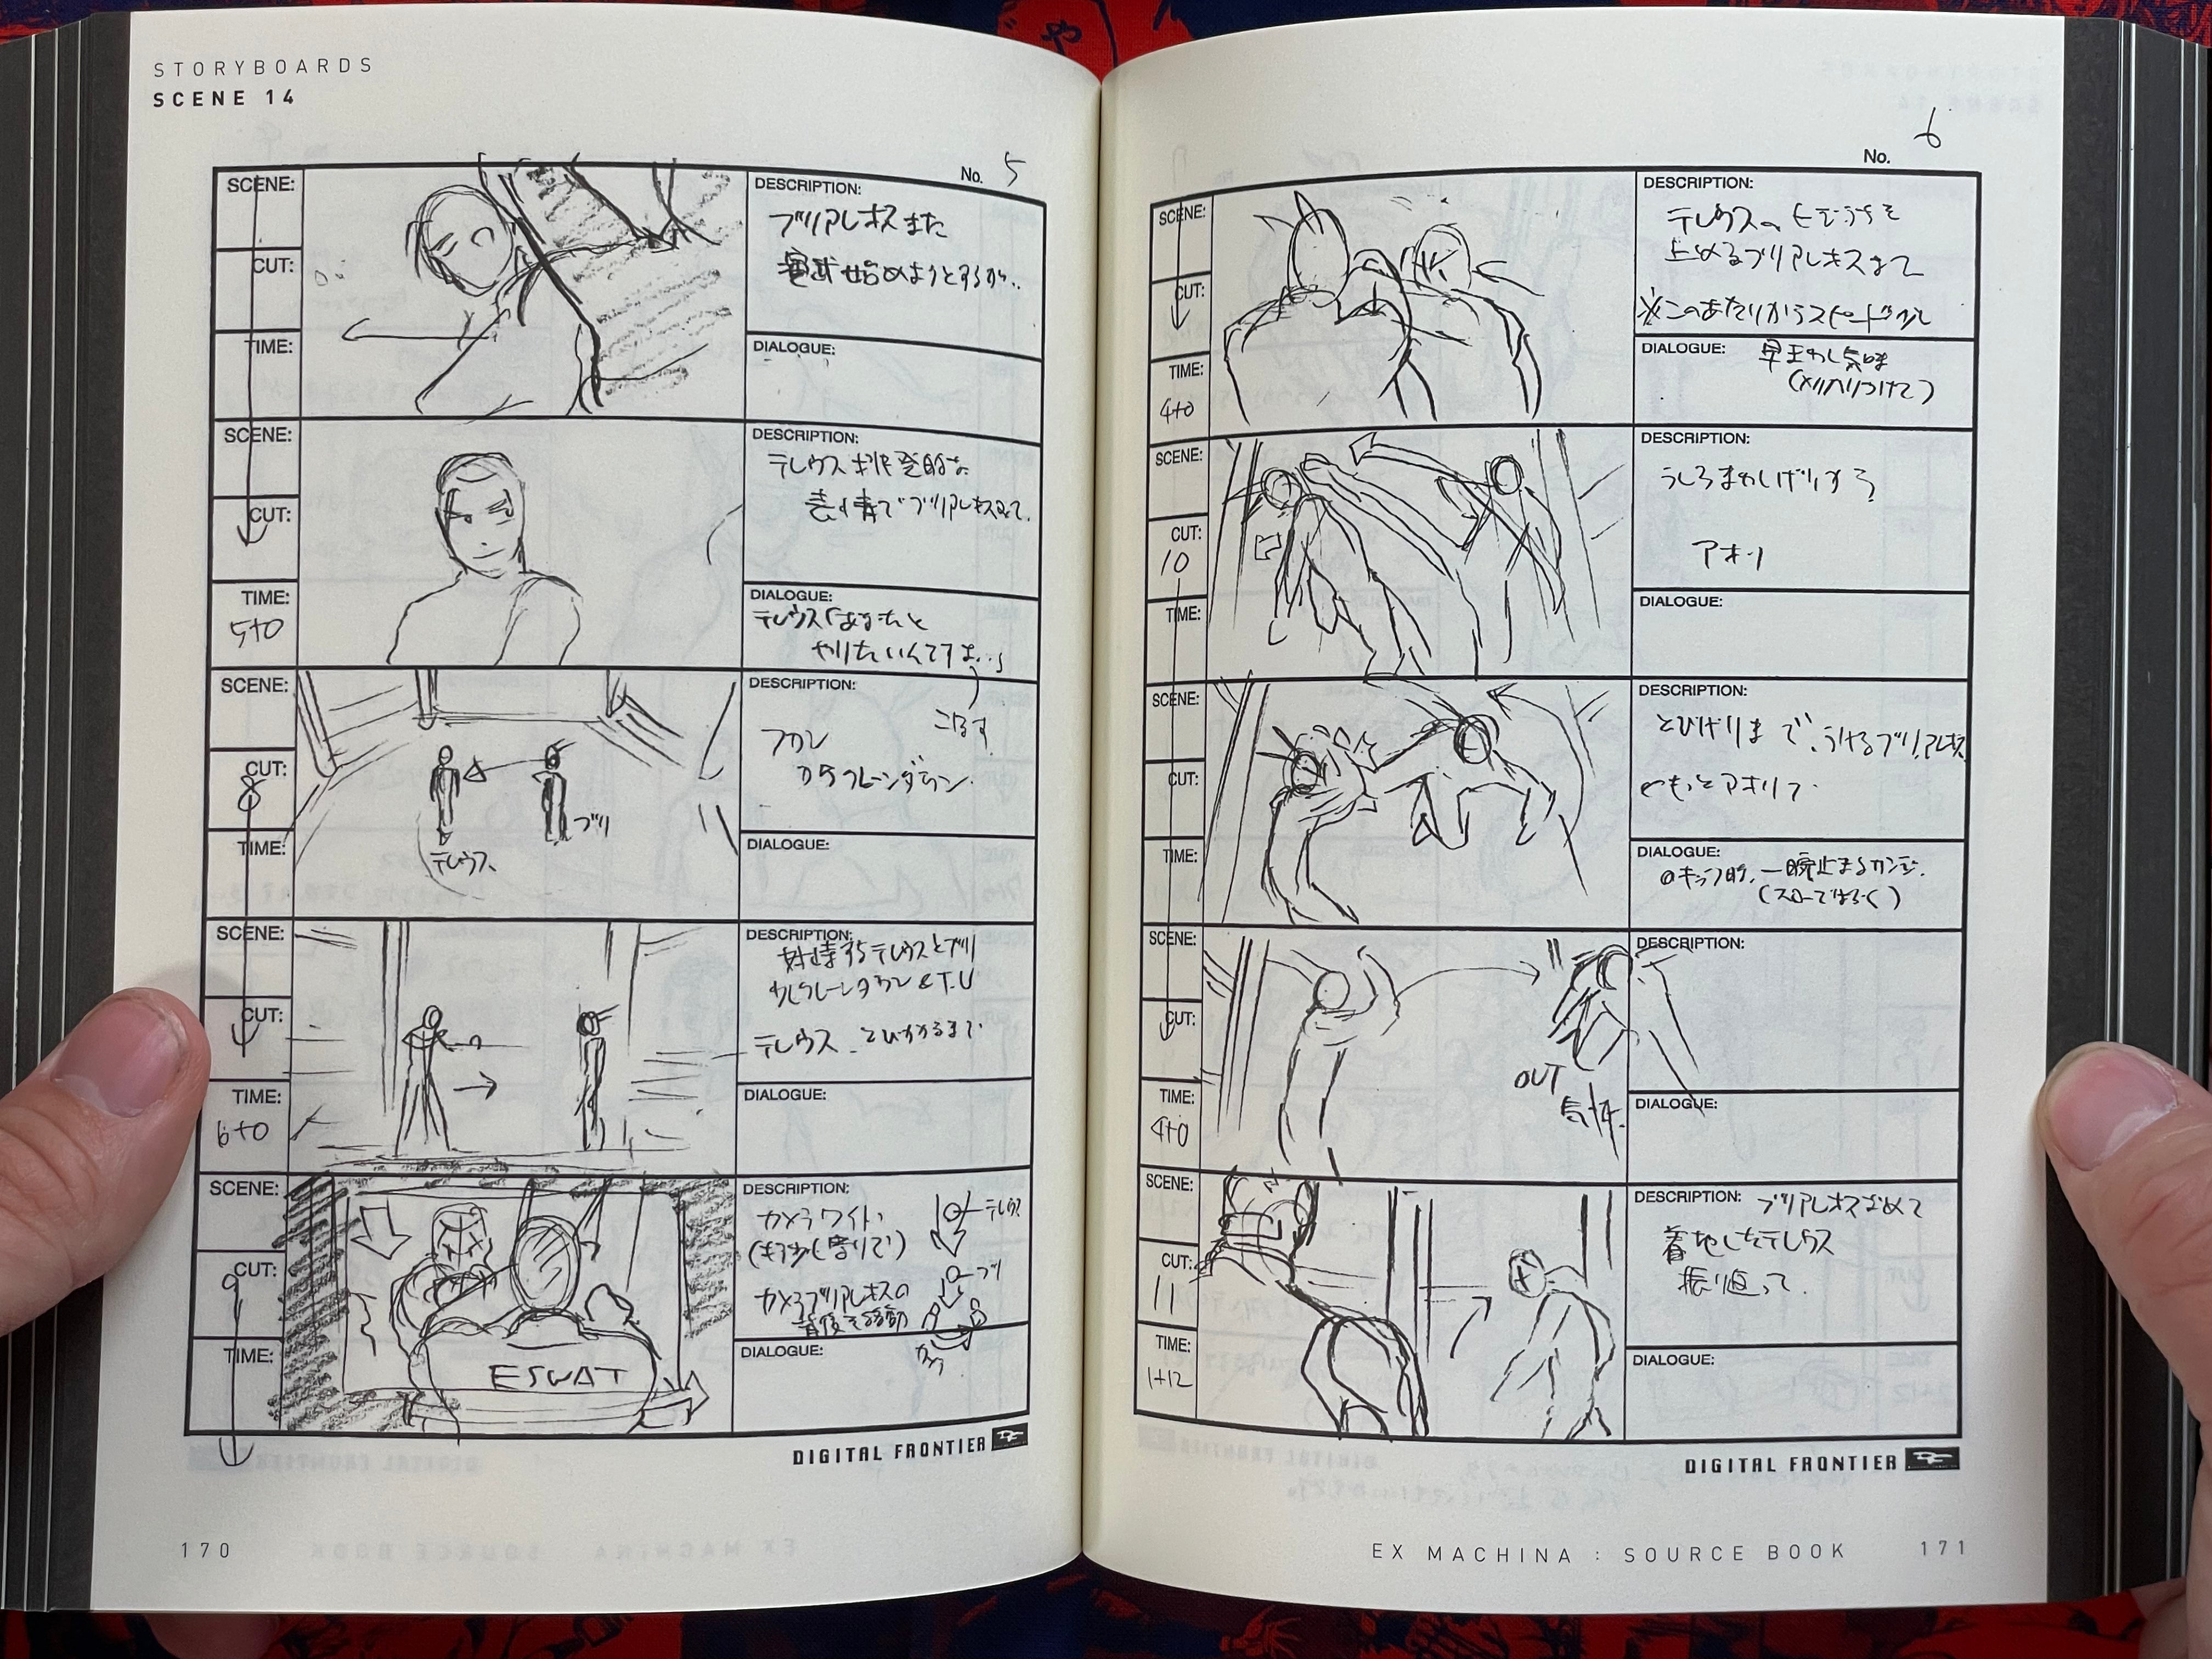 STORYBOARDS
SCENE 14
No. 5
SCENE:
CUT:
TIME:
DESCRIPTION:
ブリアレオスまた
始めようとするが..
DIALOGUE:
SCENE:
CUT:
TIME:
5+0
DESCRIPTION:
テレウス 挑発的な
表情でブリアレオスみて.
DIALOGUE:
テレウス「あなたと
やりたいんですよ..」
SCENE:
CUT:
8
TIME:
テレウス
ブリ
DESCRIPTION:
こぼす
フカン
からクレーンダウン.
DIALOGUE:
SCENE:
CUT:
TIME:
6+0
DESCRIPTION:
対峙するテレウスとブリ
クレーンダウン & T.U
テレウス とびかかるまで
DIALOGUE:
SCENE:
CUT:
9
TIME:
ESWAT
DESCRIPTION:
カメラワイド
(も少し寄りで)
カメラブリアレオスの
背後を移動
テレウス
ブリ
カメラ
DIALOGUE:
DIGITAL FRONTIER
170
No. 6
SCENE:
CUT:
TIME:
4+0
DESCRIPTION:
テレウスのヒジうちを
止めるブリアレオスまで
※このあたりからスピード
DIALOGUE:
早まわし気味
(メリハリつけて)
SCENE:
CUT:
10
TIME:
DESCRIPTION:
うしろまわしげりする
アオリ
DIALOGUE:
SCENE:
CUT:
TIME:
DESCRIPTION:
とびげりまで、うけるブリアレオス
もっとアオリで
DIALOGUE:
一瞬止まるカンジ.
(スローではなく)
SCENE:
CUT:
TIME:
4+0
OUT
気味
DESCRIPTION:
DIALOGUE:
SCENE:
CUT:
11
TIME:
1+12
DESCRIPTION:
ブリアレオスなめて
着地したテレウス
振り返って.
DIALOGUE:
DIGITAL FRONTIER
EX MACHINA : SOURCE BOOK
171